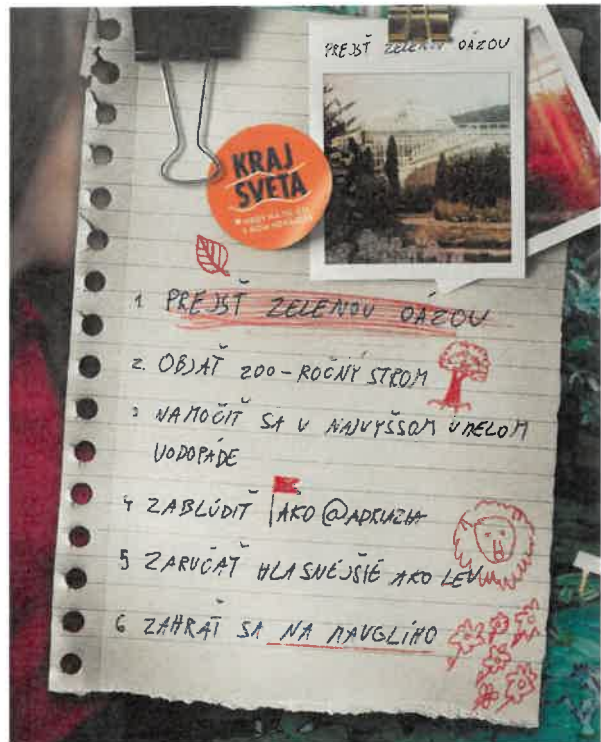 PREJSŤ ZELENOU OÁZOU
KRAJ
SVETA
1 PREJSŤ ZELENOU OÁZOU
2. OBJAŤ 200-ROČNÝ STROM
3 NAMOČIŤ SA V NAJVYŠŠOM UMELOM
VODOPÁDE
4 ZABLÚDIŤ AKO @ADRUZIA
5 ZARUČAŤ HLASNEJŠIE AKO LEV
6 ZAHRAŤ SA NA MAUGLÍHO